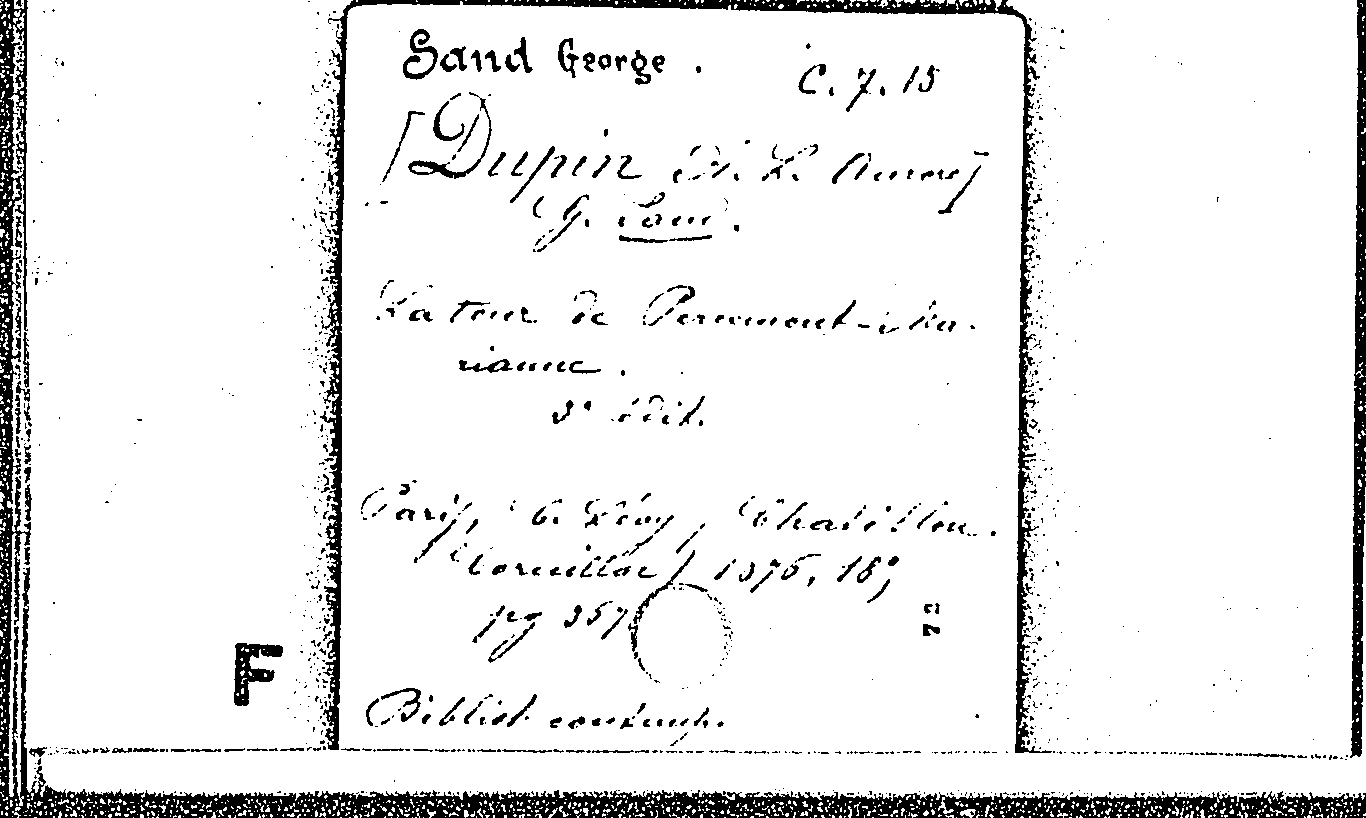 Sand George.
C. 7. 15
[Dupin A. L. Aurore]
G. Sand.
La tour de Percemont - Ma-
rianne.
3e édit.
Paris, C. Lévy, (Chatillon.
Cornillac) 1876, 18°,
pg 357
Bibliot. contemp.
F